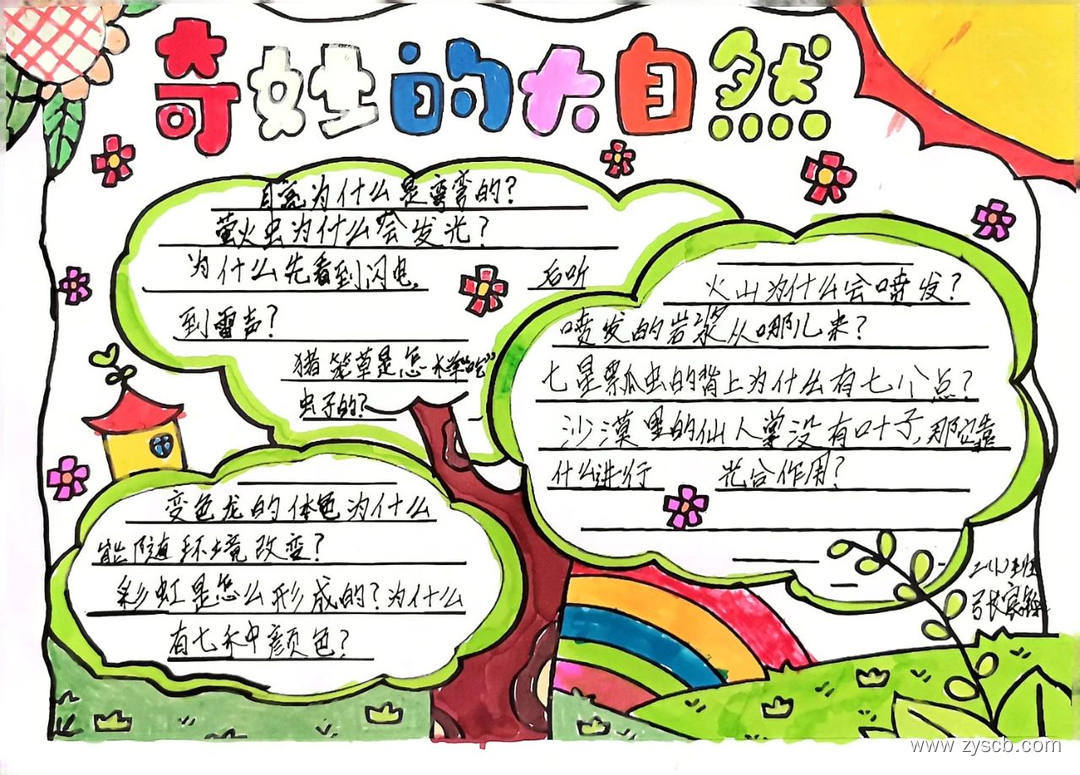 奇妙的大自然
月亮为什么是弯弯的?
萤火虫为什么会发光?
为什么先看到闪电, 后听
到雷声?
猪笼草是怎么
虫子的?
火山为什么会喷发?
喷发的岩浆从哪儿来?
七星瓢虫的背上为什么有七个点?
沙漠里的仙人掌没有叶子,那靠
什么进行 光合作用?
变色龙的体色为什么
能随环境改变?
彩虹是怎么形成的?为什么
有七种颜色?
www.zyscb.com